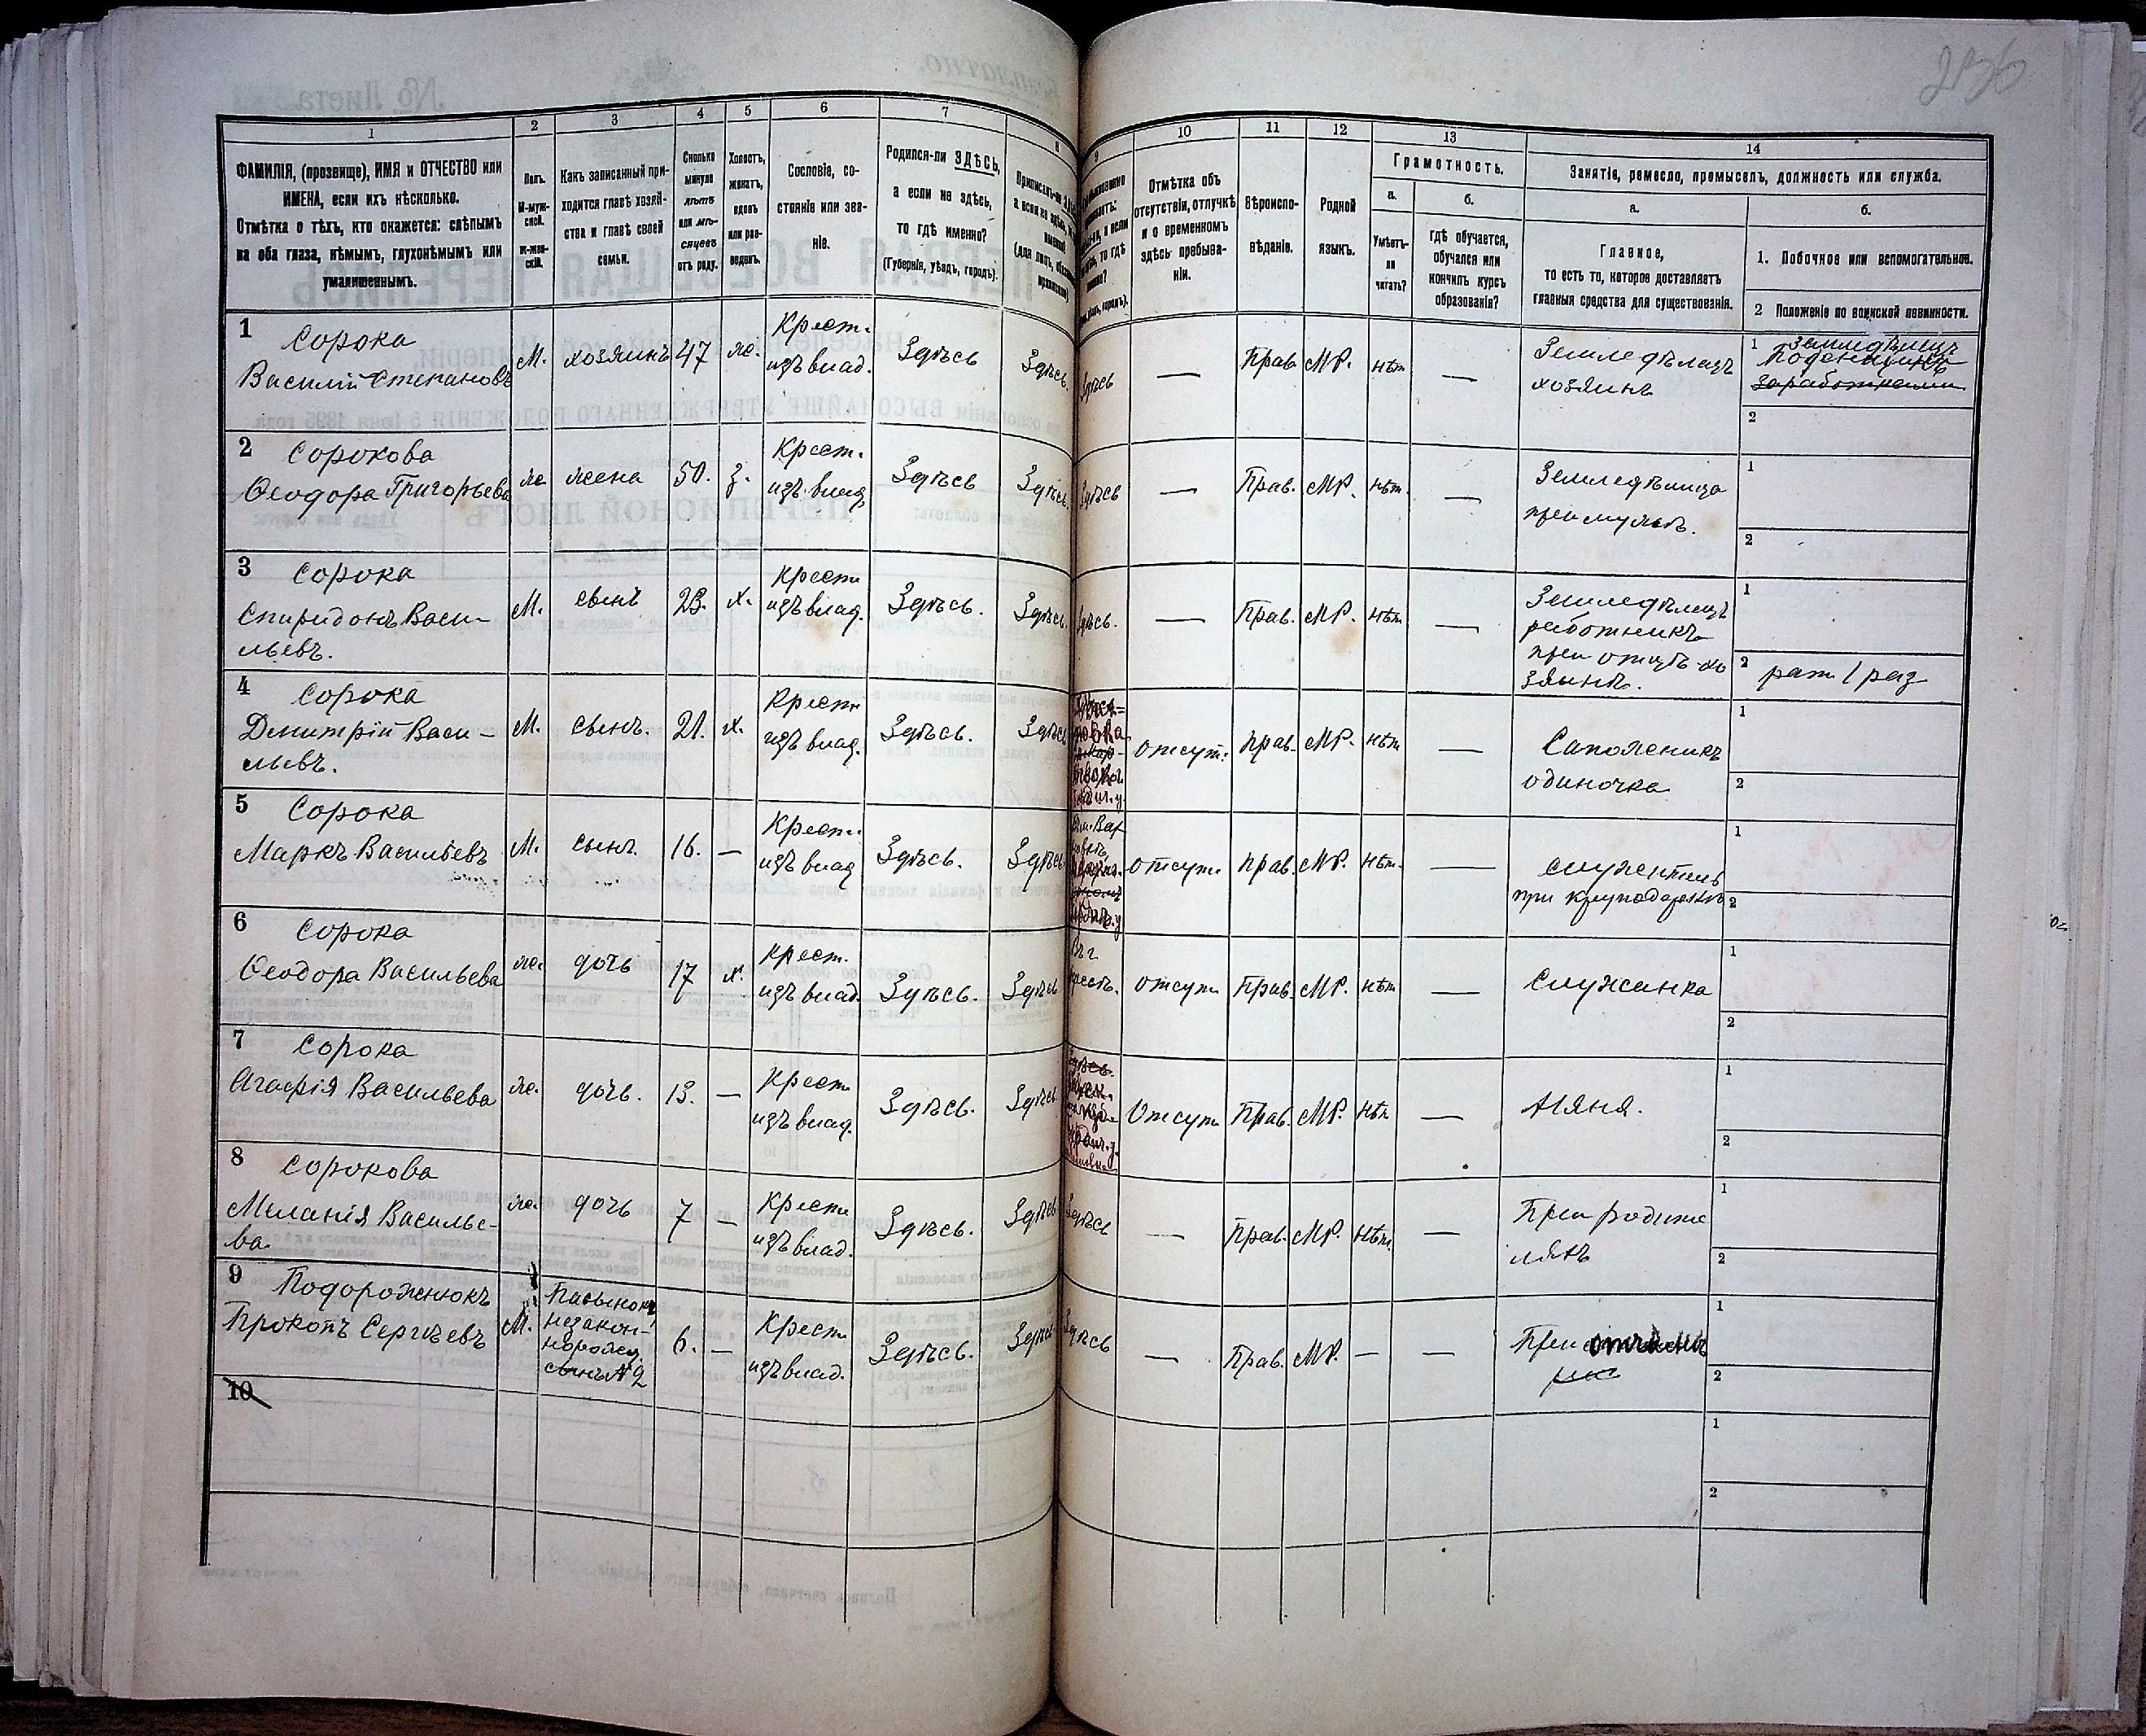 236
1 2 3 4 5 6 7 8
ФАМИЛІЯ, (прозвище), ИМЯ и ОТЧЕСТВО или
ИМЕНА, если ихъ нѣсколько.
Отмѣтка о тѣхъ, кто окажется: слѣпымъ
на оба глаза, нѣмымъ, глухонѣмымъ или
умалишеннымъ.
Полъ.
М-муж-
ской.
Ж-жен-
скій.
Какъ записанный при-
ходится главѣ хозяй-
ства и главѣ своей
семьи.
Сколько
минуло
лѣтъ
или мѣ-
сяцевъ
отъ роду.
Холостъ,
женатъ,
вдовъ
или раз-
веденъ.
Сословіе, со-
стояніе или зва-
ніе.
Родился-ли ЗДѢСЬ,
а если не здѣсь,
то гдѣ именно?
(Губернія, уѣздъ, городъ).
9 10 11 12 13 14
Отмѣтка объ
отсутствіи, отлучкѣ
и о временномъ
здѣсь пребыва-
ніи.
Вѣроиспо-
вѣданіе.
Родной
языкъ.
Грамотность.
а.
Умѣетъ-
ли
читать?
б.
Гдѣ обучается,
обучался или
кончилъ курсъ
образованія?
Занятіе, ремесло, промыселъ, должность или служба.
а.
Главное,
то есть то, которое доставляетъ
главныя средства для существованія.
б.
1. Побочное или вспомогательное.
2 Положеніе по воинской повинности.
1 Сорока
Василій Степановъ
М. хозяинъ 47 ж. Крест. Здѣсь Здѣсь.
изъ влад.
Здѣсь — Прав. МР. нѣт — Земледѣлецъ
хозяинъ
1 Земледѣлецъ
Поденщикъ
заработками
2
2 Сорокова
Ѳеодора Григорьева
ж жена 50. з. Крест. Здѣсь Здѣсь
изъ влад
Здѣсь — Прав. МР. нѣт. — Земледѣлица
при мужѣ.
1
2
3 Сорока
Спиридонъ Васи-
льевъ.
М. сынъ 23. х. Крест Здѣсь. Здѣсь
изъ влад.
Здѣсь. — Прав. МР. нѣт — Земледѣлецъ
работникъ
при отцѣ-хо
зяинѣ.
1
2 рат 1 раз
4 Сорока
Дмитрій Васи-
льевъ.
М. сынъ. 21. х. Крест Здѣсь. Здѣсь
изъ влад.
отсут. прав. МР. нѣт — Сапожникъ
одиночка
1
2
5 Сорока
Маркъ Васильевъ
М. сынъ. 16. — Крест. Здѣсь. Здѣсь
изъ влад
отсут прав. МР. нѣт. — служитель
при
1
2
6 Сорока
Ѳеодора Васильева
ж. дочь 17 х. Крест. Здѣсь. Здѣсь
изъ влад.
отсут Прав. МР. нѣт — Служанка
1
2
7 Сорока
Агафія Васильева
ж. дочь. 13. — Крест Здѣсь. Здѣсь
изъ влад.
Отсут Прав. МР. нѣт — Няня.
1
2
8 Сорокова
Меланія Василье-
ва.
ж. дочь 7 — Крест Здѣсь. Здѣсь
изъ влад.
Здѣсь — Прав. МР. нѣт. — При родите
ляхъ
1
2
9 Подорожнюкъ
Прокопъ Сергѣевъ
М. Пасынокъ
незакон-
норожд.
сынъ № 2
6. — Крест Здѣсь. Здѣсь
изъ влад.
Здѣсь — Прав. МР. — — При
1
2
10
1
2